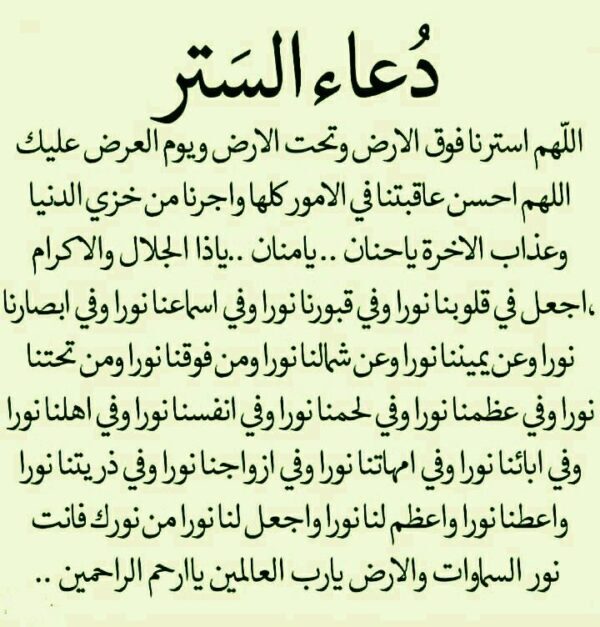 دُعاء السَتر
اللّهم استرنا فوق الارض وتحت الارض ويوم العرض عليك
اللهم احسن عاقبتنا في الامور كلها واجرنا من خزي الدنيا
وعذاب الاخرة ياحنان ..يامنان ..ياذا الجلال والاكرام
،اجعل في قلوبنا نورا وفي قبورنا نورا وفي اسماعنا نورا وفي ابصارنا
نورا وعن يميننا نورا وعن شمالنا نورا ومن فوقنا نورا ومن تحتنا
نورا وفي عظمنا نورا وفي لحمنا نورا وفي انفسنا نورا وفي اهلنا نورا
وفي ابائنا نورا وفي امهاتنا نورا وفي ازواجنا نورا وفي ذريتنا نورا
واعطنا نورا واعظم لنا نورا واجعل لنا نورا من نورك فانت
نور السماوات والارض يارب العالمين ياارحم الراحمين ..